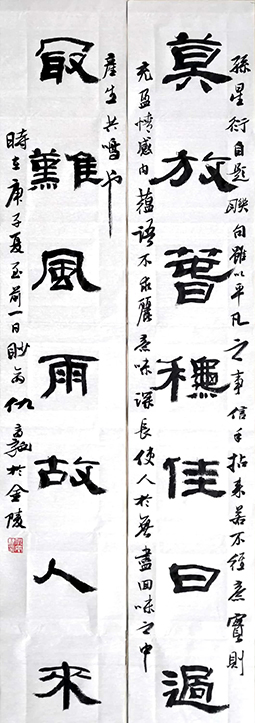 孫星衍自題聯句雖以平凡之事信手拈來若不經意實則
莫放萅穐佳日過
充盈情感內蘊語不求麗意味深長使人於無盡回味之中
產生共鳴也
冣難風雨故人來
時在庚子夏至前一日於金陵